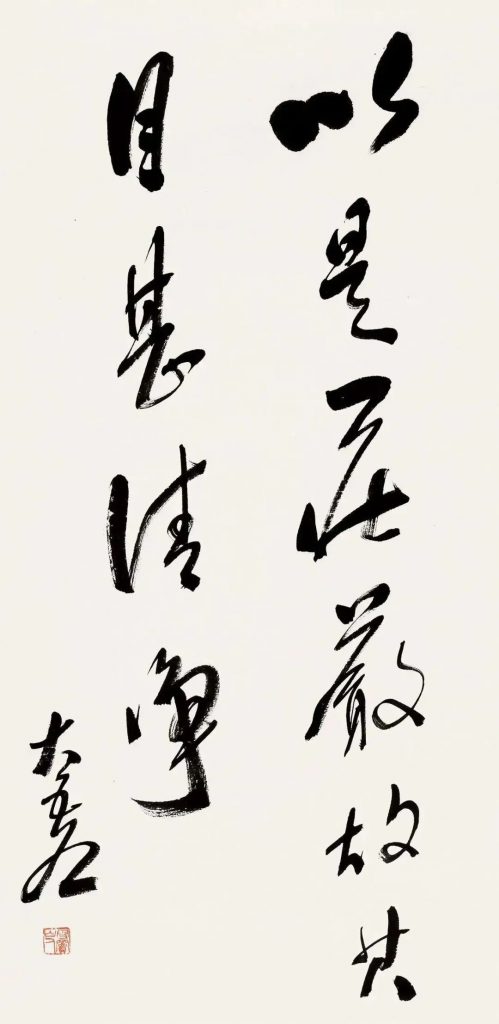 以是莊嚴故其
目甚清淨
大